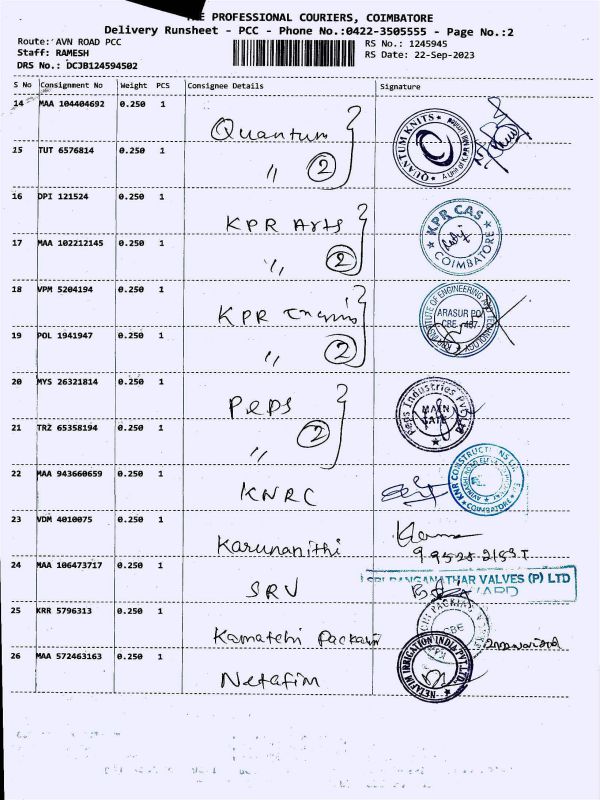 PROFESSIONAL COURIERS, COIMBATORE
Delivery Runsheet - PCC - Phone No.:0422-3505555 - Page No.:2
Route: AVN ROAD PCC
Staff: RAMESH
DRS No.: DCJB124594502
RS No.: 1245945
RS Date: 22-Sep-2023
S No Consignment No Weight PCS Consignee Details Signature
14 MAA 104404692 0.250 1 Quantum
QUANTUM KNITS
15 TUT 6576814 0.250 1 〃 2
16 DPI 121524 0.250 1 KPR Arts
KPR CAS COIMBATORE
17 MAA 102212145 0.250 1 〃 2
18 VPM 5204194 0.250 1 KPR
INSTITUTE OF ENGINEERING AND TECHNOLOGY
ARASUR PO
CBE - 407
19 POL 1941947 0.250 1 〃 2
20 MYS 26321814 0.250 1 Peps
Peps Industries Pvt
MAIN GATE
21 TRZ 65358194 0.250 1 〃 2
22 MAA 943660659 0.250 1 KNRC
KNR CONSTRUCTIONS
COIMBATORE
23 VDM 4010075 0.250 1 Karunanithi
24 MAA 106473717 0.250 1 SRV
SRI RANGANATHAR VALVES (P) LTD
25 KRR 5796313 0.250 1 Kamatchi
PACKING
CBE
26 MAA 572463163 0.250 1 Netafim
NETAFIM IRRIGATION INDIA PVT. LTD.